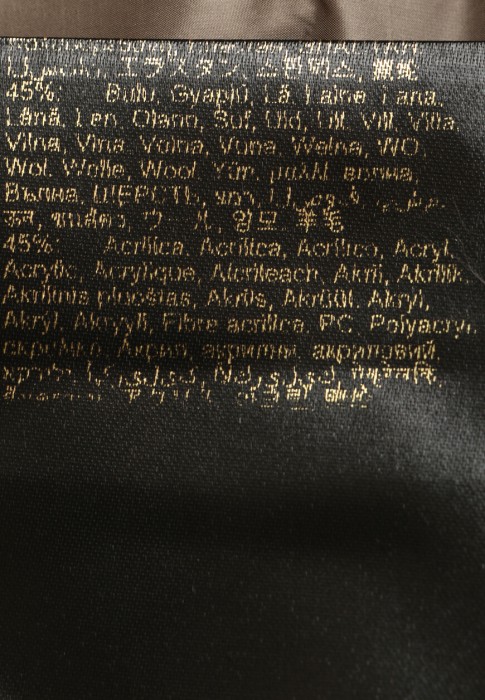 エラスタン, 스판덱스,
45%: Bulu, Gyapjú, Lã, Laine, Lana,
Lână, Len, Olann, Suf, Uld, Ull, Vill, Villa,
Vilna, Vlna, Volna, Vuna, Wełna, WO,
Wol, Wolle, Wool, Yün, μαλλί, волна,
Вълна, ШЕРСТЬ, צמר,
ऊन, ขนสัตว์, ウール, 양모, 羊毛
45%: Acrílica, Acrilica, Acrílico, Acryl,
Acrylic, Acrylique, Aicrileach, Akril, Akrilik,
Akrilinis pluoštas, Akrils, Akrüül, Akryl,
Akrýl, Akryyli, Fibre acrilice, PC, Polyacryl,
ακρυλικό, Акрил, акрилни, акриловий,